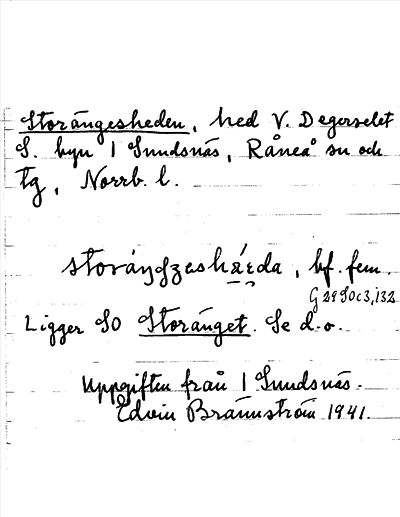 Storängesheden, hed V. Degerselet
S. byn 1 Sundsnäs, Råneå sn och
tg, Norrb. l.
storáŋʒesha̱ṟ́da, bf. fem.
G 29 SO c3,132
Ligger SO Storänget. Se d.o.
Uppgiften från 1 Sundsnäs.
Edvin Brännström 1941.